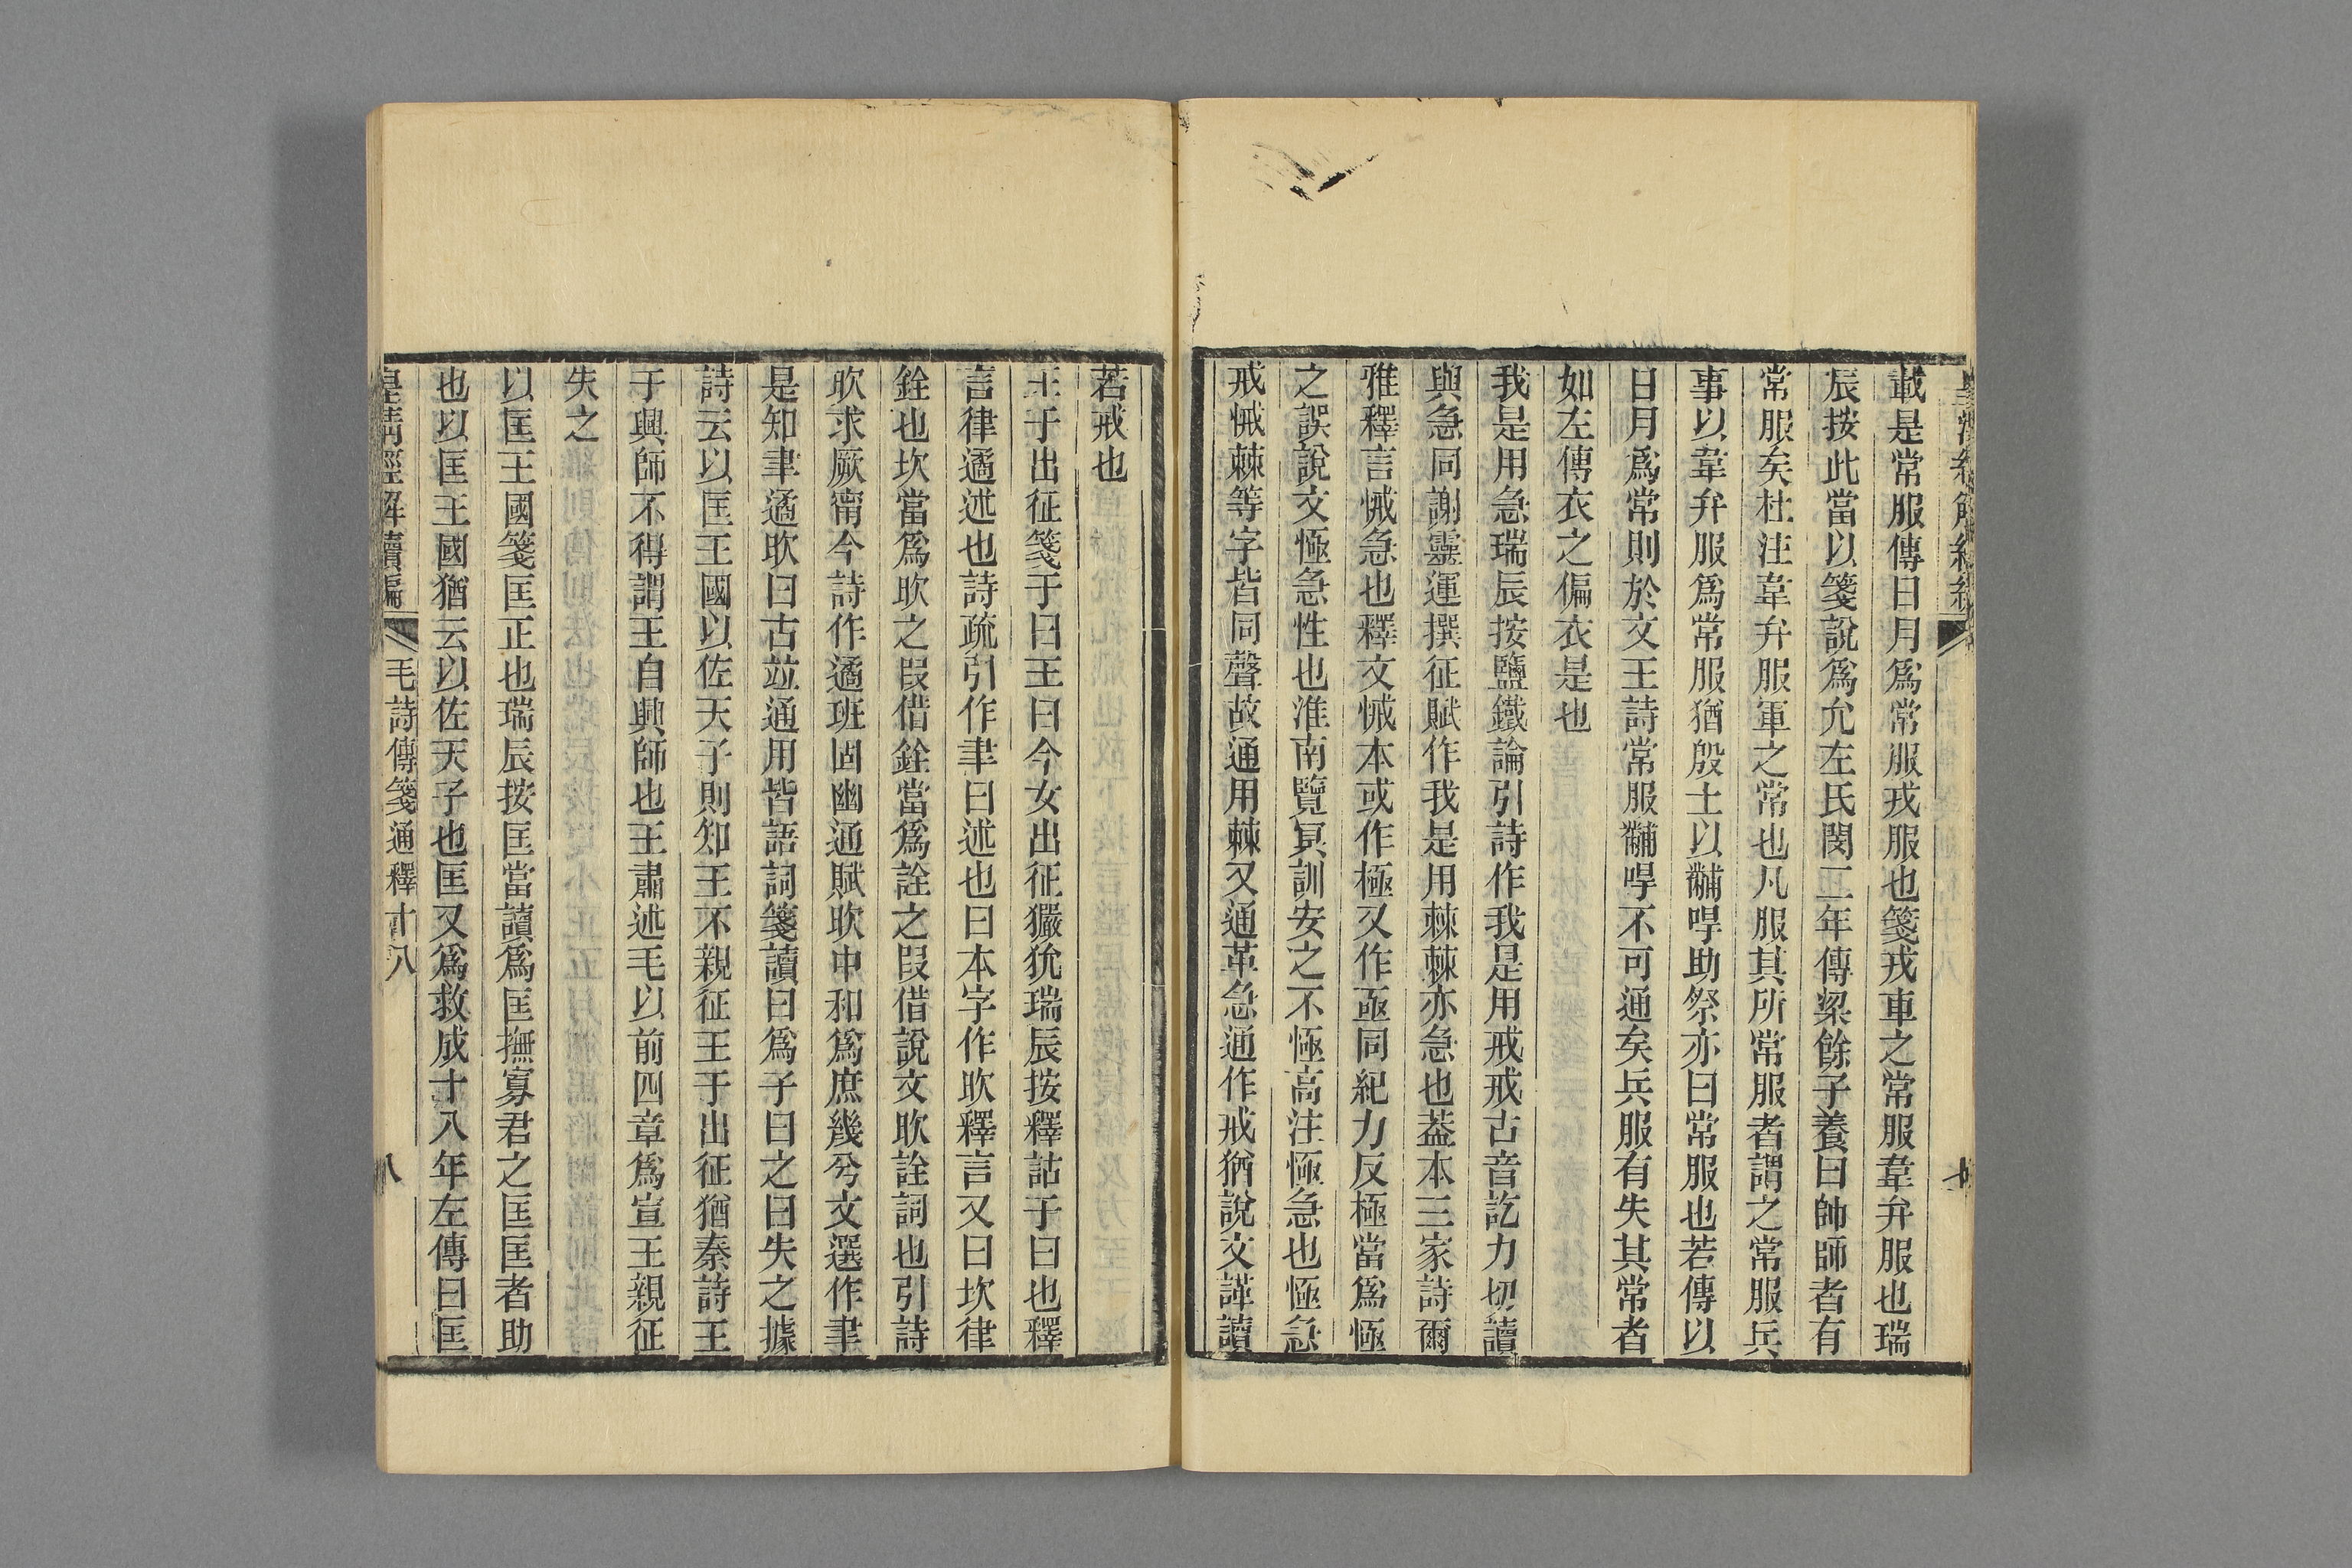 載是常服傳日月爲常服戎服也箋戎車之常服韋弁服也瑞
辰按此當以箋說爲允左氏閔二年傳梁餘子養曰帥師者有
常服矣杜注韋弁服軍之常也凡服其所常服者謂之常服兵
事以韋弁服爲常服猶殷士以黼冔助祭亦曰常服也若傳以
日月爲常則於文王詩常服黼冔不可通矣兵服有失其常者
如左傳衣之偏衣是也
我是用急瑞辰按鹽鐵論引詩作我是用戒戒古音訖力切讀
與急同謝靈運撰征賦作我是用棘棘亦急也葢本三家詩爾
雅釋言悈急也釋文悈本或作極又作亟同紀力反極當爲㥛
之誤說文㥛急性也淮南覽冥訓安之不㥛高注㥛急也㥛急
戒悈棘等字皆同聲故通用棘又通革急通作戒猶說文諽讀
若戒也
王于出征箋于曰王曰今女出征玁狁瑞辰按釋詁于曰也釋
言律遹述也詩疏引作聿曰述也曰本字作欥釋言又曰坎律
銓也坎當爲欥之叚借銓當爲詮之叚借說文欥詮詞也引詩
欥求厥甯今詩作遹班固幽通賦欥中和爲庶幾兮文選作聿
是知聿遹欥曰古竝通用皆語詞箋讀曰爲子曰之曰失之據
詩云以匡王國以佐天子則知王不親征王于出征猶秦詩王
于興師不得謂王自興師也王肅述毛以前四章爲宣王親征
失之
以匡王國箋匡正也瑞辰按匡當讀爲匡撫寡君之匡匡者助
也以匡王國猶云以佐天子也匡又爲救成十八年左傳曰匡
皇淸經解續編
毛詩傳箋通釋十八
八